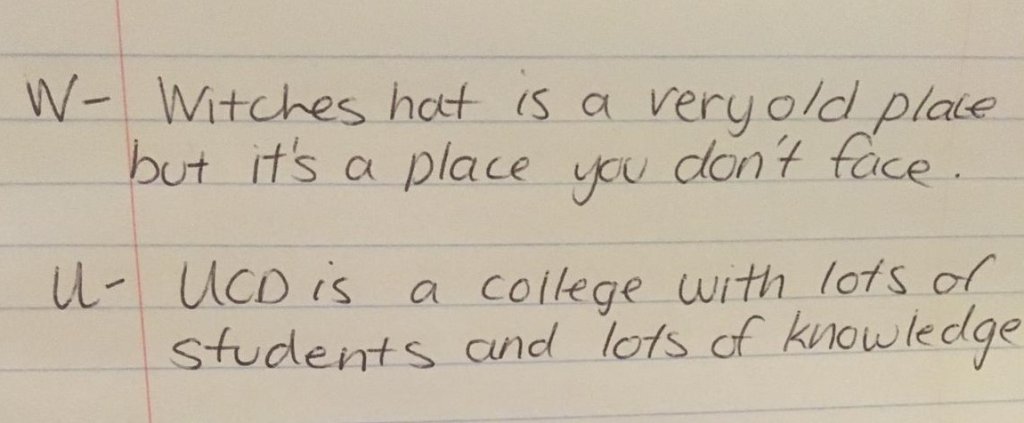 W- Witches hat is a very old place
but it's a place you don't face.
U- UCD is a college with lots of
students and lots of knowledge